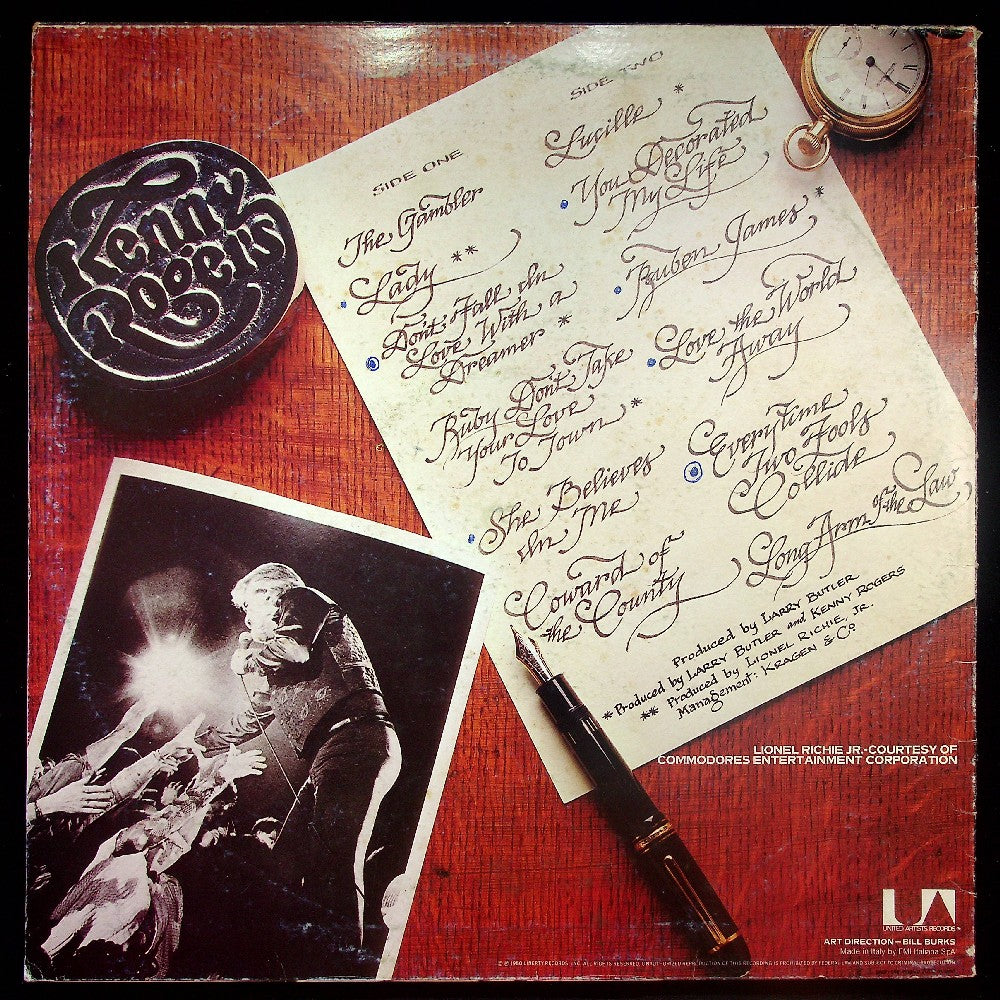 Kenny
Rogers
SIDE ONE
The Gambler
Lady **
Don't Fall In
Love With a
Dreamer *
Ruby Don't Take
Your Love
To Town *
She Believes
In Me
Coward of
the County
SIDE TWO
Lucille *
You Decorated
My Life
Reuben James *
Love the World
Away
Everytime
Two Fools
Collide
Long Arm of the Law
Produced by LARRY BUTLER
* Produced by LARRY BUTLER and KENNY ROGERS
** Produced by LIONEL RICHIE, JR.
Management: KRAGEN & Co
LIONEL RICHIE JR.-COURTESY OF
COMMODORES ENTERTAINMENT CORPORATION
UA
UNITED ARTISTS RECORDS
ART DIRECTION—BILL BURKS
Made in Italy by EMI Italiana SpA
1980 LIBERTY RECORDS, INC. ALL RIGHTS RESERVED. UNAUTHORIZED REPRODUCTION OF THIS RECORDING IS PROHIBITED BY FEDERAL LAW AND SUBJECT TO CRIMINAL PROSECUTION.